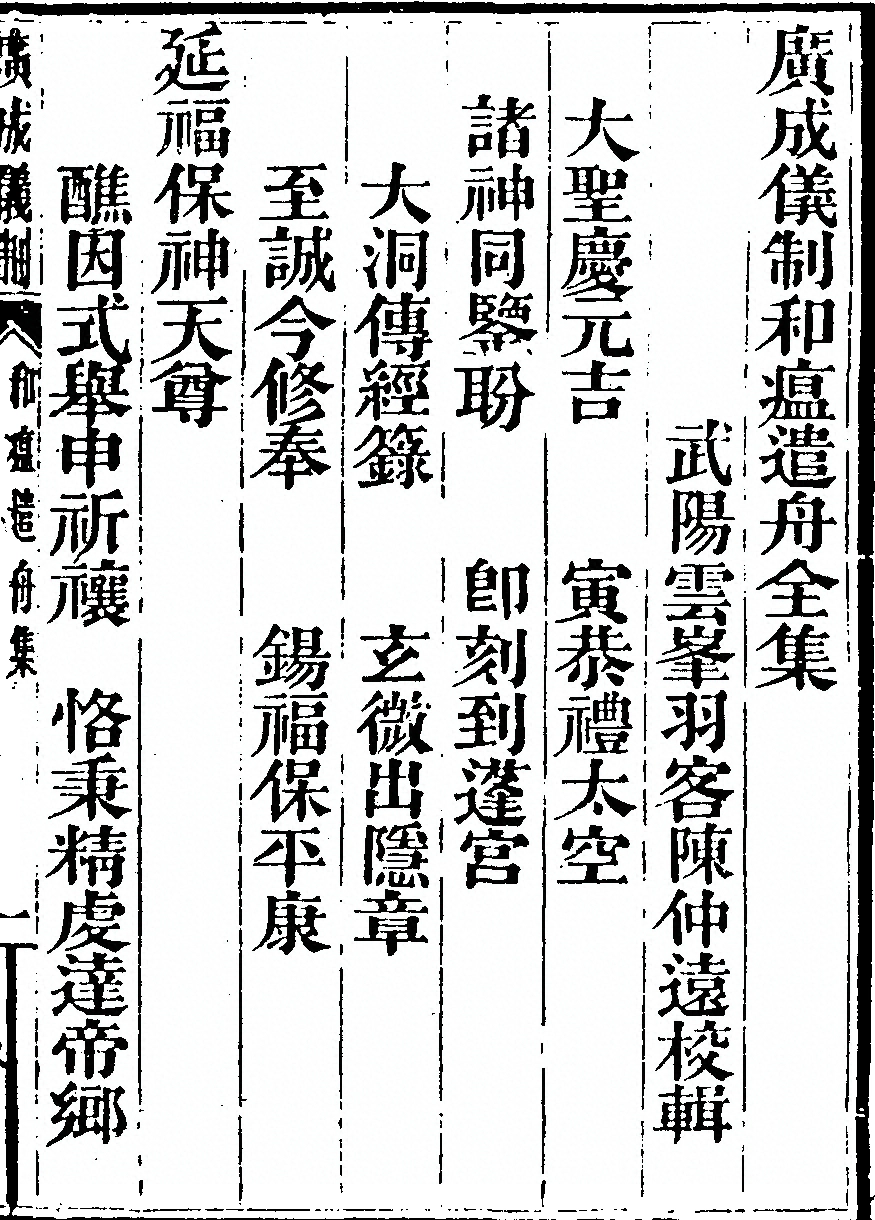 廣成儀制和瘟遣舟全集
武陽雲峯羽客陳仲遠校輯
大聖慶元吉　寅恭禮太空
諸神同鑒盼　即刻到蓬宮
大洞傳經籙　玄微出隱章
至誠今修奉　錫福保平康
延福保神天尊
醮因式舉申祈禳　恪秉精虔達帝鄉
廣成儀制　和瘟遣舟集　一